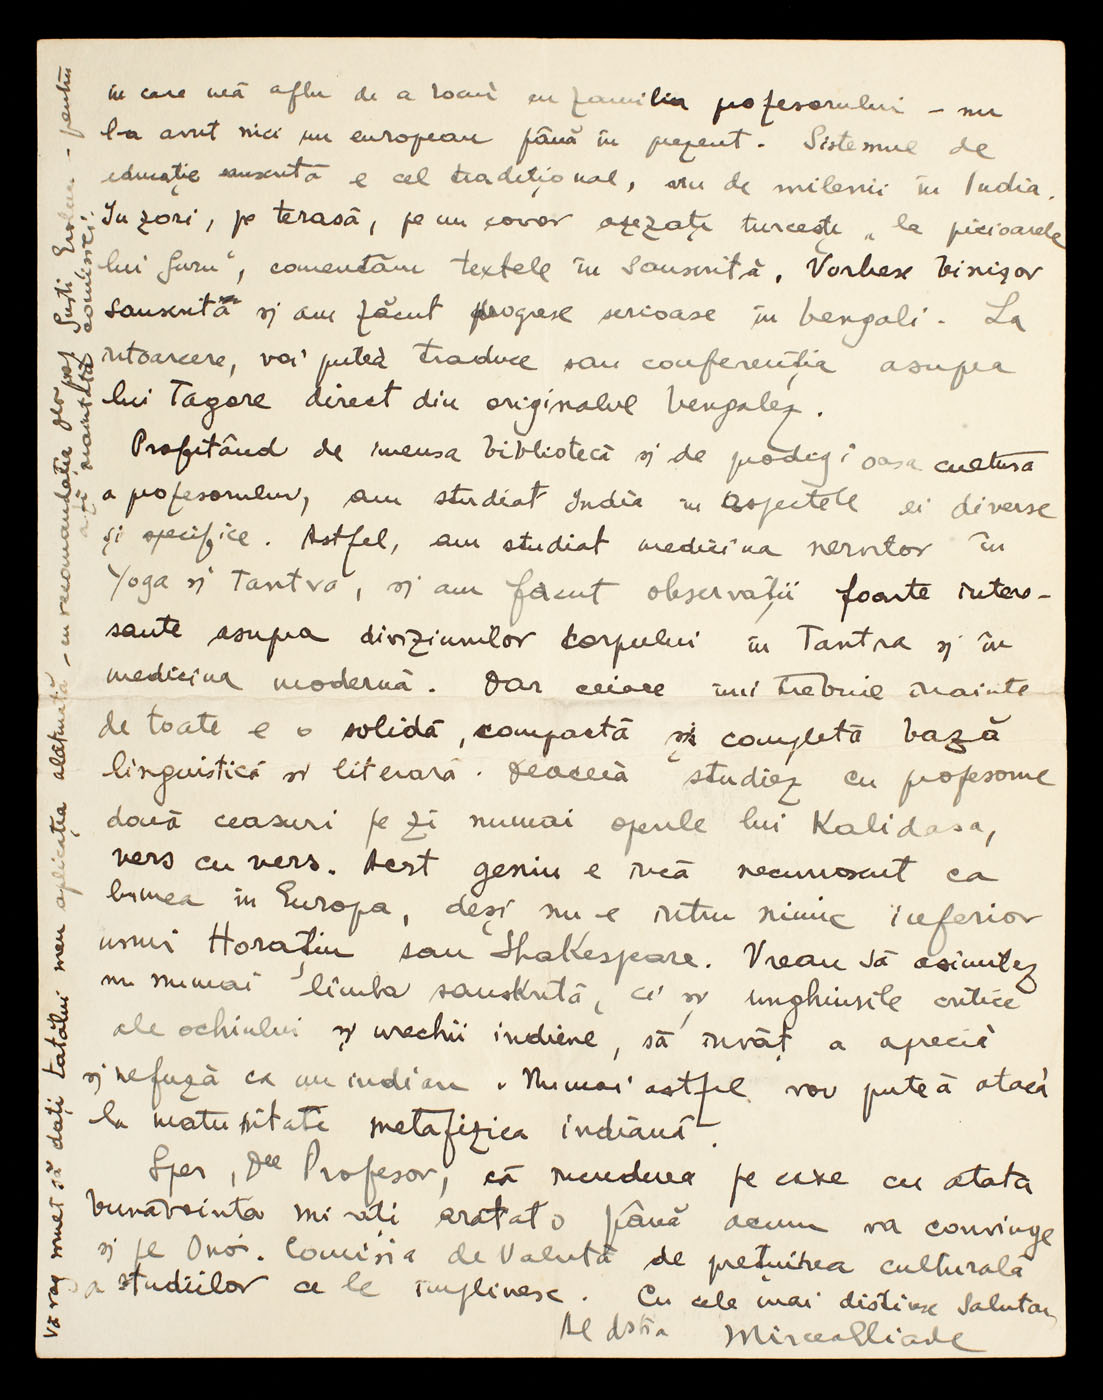 în care mă aflu de a locui cu familia profesorului – nu
l-a avut nici un european până în prezent. Sistemul de
educație sanscrită e cel tradițional, viu de milenii în India.
In zori, pe terasă, pe un covor așezați turcește „la picioarele
lui Guru", comentăm textele în sanscrită. Vorbesc binișor
sanscrită și am făcut progrese serioase în bengali. La
ntoarcere, voi puteà traduce sau conferenția asupra
lui Tagore direct din originalul bengalez.
Profitând de imensa bibliotecă și de prodigioasa cultură
a profesorului, am studiat India în aspectele ei diverse
și specifice. Astfel, am studiat medicina nervilor în
Yoga și Tantra, și am făcut observații foarte intere-
sante asupra diviziunilor corpului în Tantra și în
medicina modernă. Dar ceiace îmi trebuie înainte
de toate e o solidă, compactă și completă bază
linguistică și literară. Deaceia studiez cu profesorul
două ceasuri pe zi numai operile lui Kalidasa,
vers cu vers. Acest geniu e încă necunoscut ca
lumea în Europa, deși nu-e intru nimic inferior
unui Horațiu sau Shakespeare. Vreau să asimilez
nu numai limba sanskrită, ci și unghiurile critice
ale ochiului și urechii indiene, să învăț a aprecià
și refuză ca un indian. Numai astfel voi puteà atacà
la maturitate metafizica indiană.
Sper, Dle Profesor, că încrederea pe care cu atâta
bunăvointa mi-ați arătat-o până acum va convinge
și pe Onor. Comisia de Valută de prețuirea culturală
a studiilor ce le împlinesc. Cu cele mai distinse salutări
Al dstra Mircea Eliade
Vă rog mult să dați tatălui meu aplicația alăturată – cu recomandația Dlor prof Gusti – pentru
a fi înaintată comisiei.